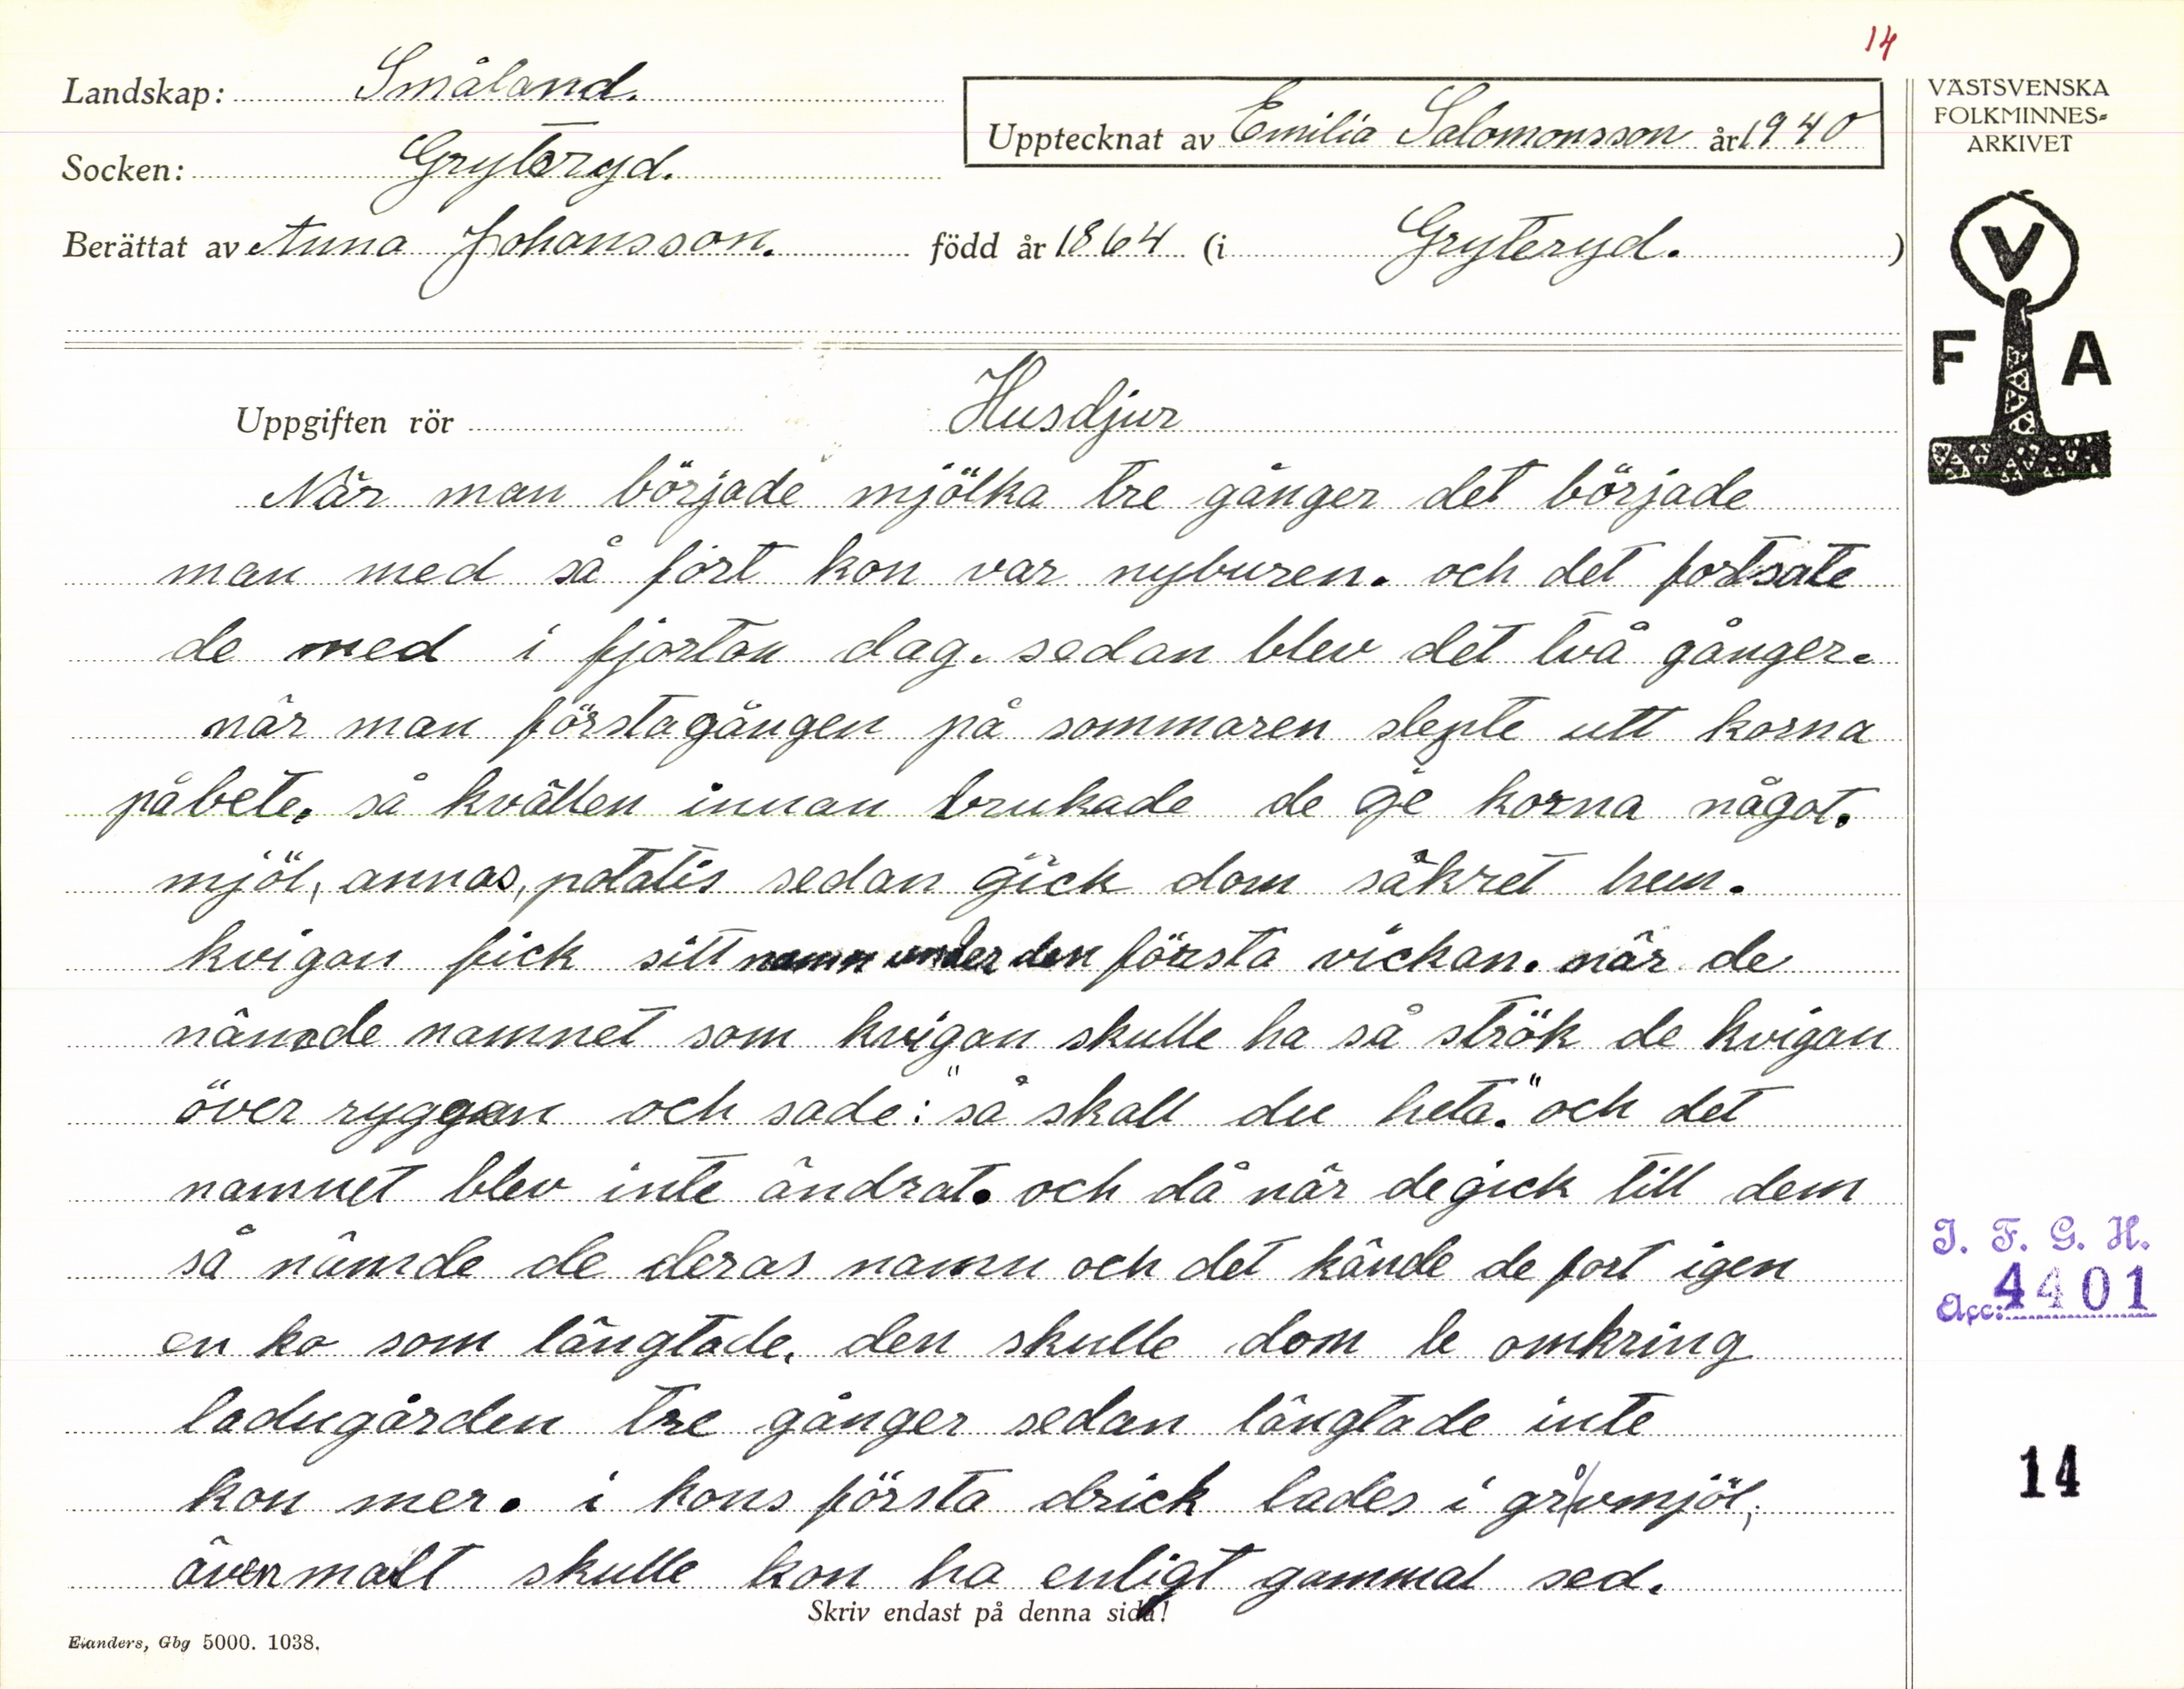 14
Landskap: Småland.
Upptecknat av Emilia Salomonsson år 1940
VÄSTSVENSKA
FOLKMINNES-
ARKIVET
Socken: Gryteryd.
Berättat av Anna Johansson. född år 1864 (i Gryteryd.)
V
F A
Uppgiften rör Husdjur
När man började mjölka tre gånger det började
man med så fort kon var nyburen. och det fortsate
de med i fjorton dag. sedan blev det två gånger.
när man förstagången på sommaren slepte utt korna
påbete. så kvällen innan brukade de ge korna något.
mjöl, annas, potatis sedan gick dom säkret hem.
kvigan fick sitt namn under den första vickan. när de
nämde namnet som kvigan skulle ha så strök de kvigan
över ryggen och sade: "så skall du heta." och det
namnet blev inte ändrat. och då när de gick till dem
så nämde de deras namn och det kände de fort igen
en ko som längtade. den skulle dom le omkring
ladugården tre gånger sedan längtade inte
kon mer. i kons första drick lades i gråvmjöl,
även malt skulle kon ha enligt gammal sed.
Skriv endast på denna sida!
Elanders, Gbg 5000. 1038.
I. F. G. H.
Acc: 4401
14